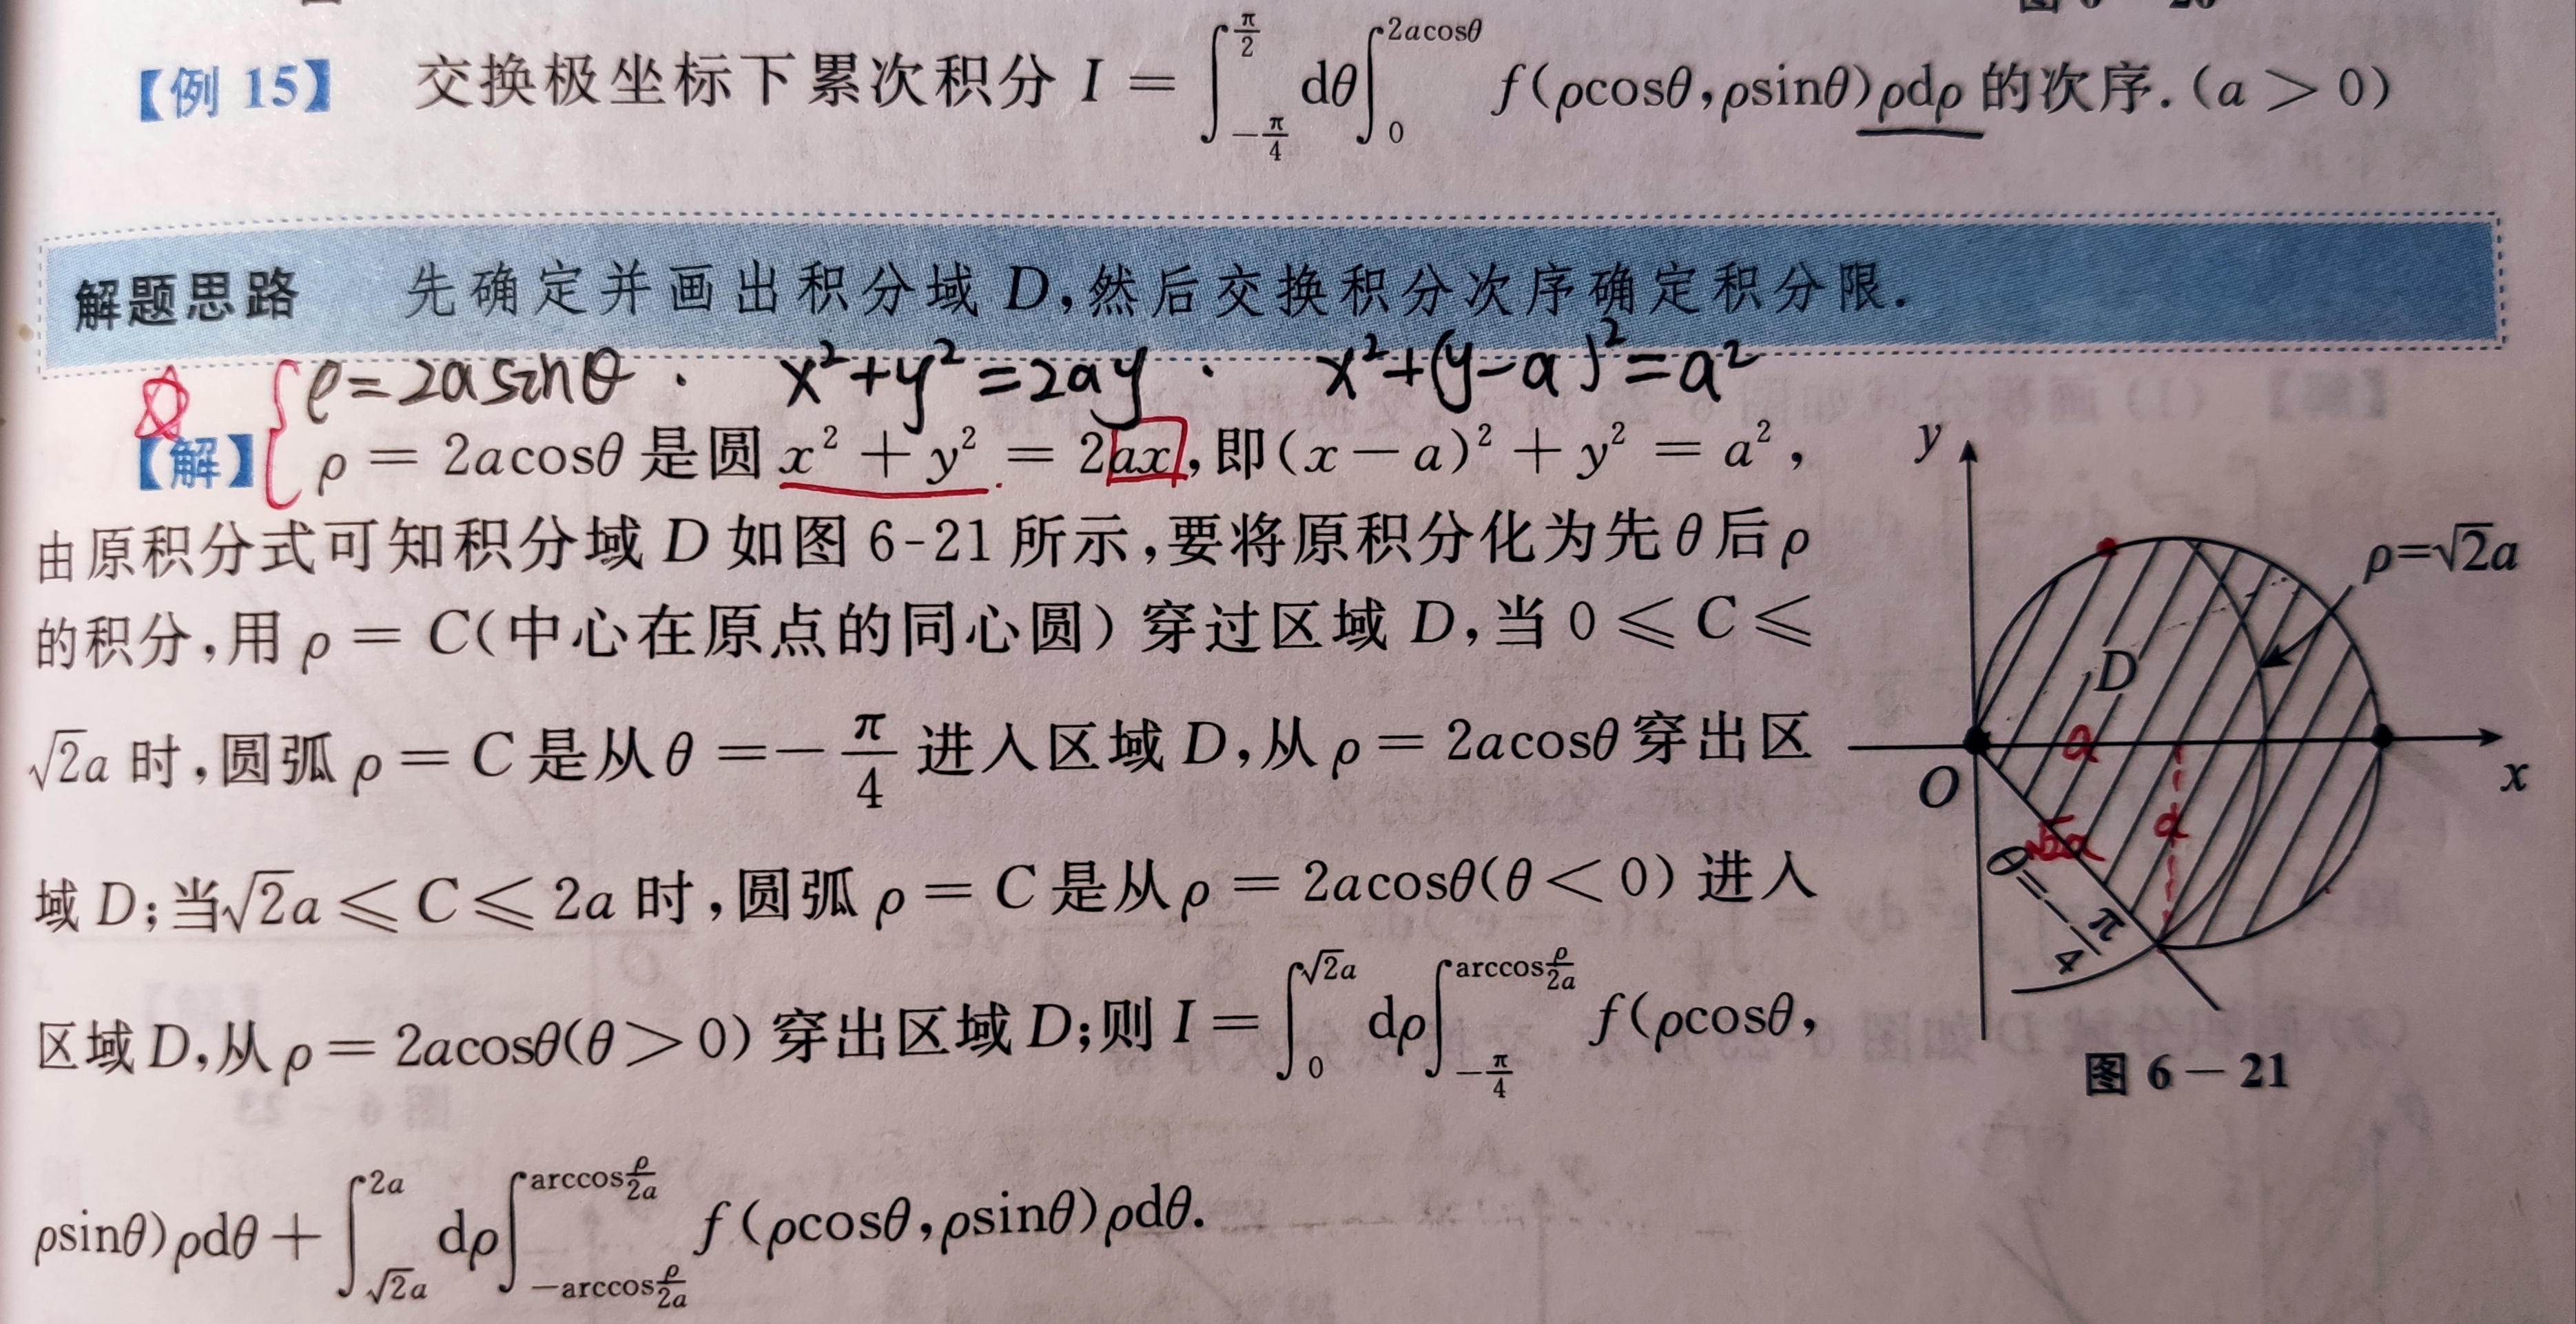 【例 15】 交换极坐标下累次积分 I = ∫_{-π/4}^{π/2} dθ ∫_0^{2acosθ} f(ρcosθ,ρsinθ)ρdρ 的次序.(a > 0)
解题思路 先确定并画出积分域 D,然后交换积分次序确定积分限.
ρ=2asinθ · x²+y²=2ay · x²+(y-a)²=a²
【解】 ρ = 2acosθ 是圆 x² + y² = 2ax,即(x - a)² + y² = a²,
由原积分式可知积分域 D 如图 6-21 所示,要将原积分化为先 θ 后 ρ
的积分,用 ρ = C(中心在原点的同心圆) 穿过区域 D,当 0 ⩽ C ⩽
√2a 时,圆弧 ρ = C 是从 θ = -π/4 进入区域 D,从 ρ = 2acosθ 穿出区
域 D;当√2a ⩽ C ⩽ 2a 时,圆弧 ρ = C 是从 ρ = 2acosθ(θ < 0) 进入
区域 D,从 ρ = 2acosθ(θ > 0) 穿出区域 D;则 I = ∫_0^{√2a} dρ ∫_{-π/4}^{arccos ρ/2a} f(ρcosθ,
ρsinθ)ρdθ + ∫_{√2a}^{2a} dρ ∫_{-arccos ρ/2a}^{arccos ρ/2a} f(ρcosθ,ρsinθ)ρdθ.
y
ρ=√2a
D
a
O
x
√2a
a
θ=-π/4
图 6-21